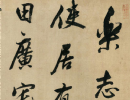 樂志
使居有
田廣宅